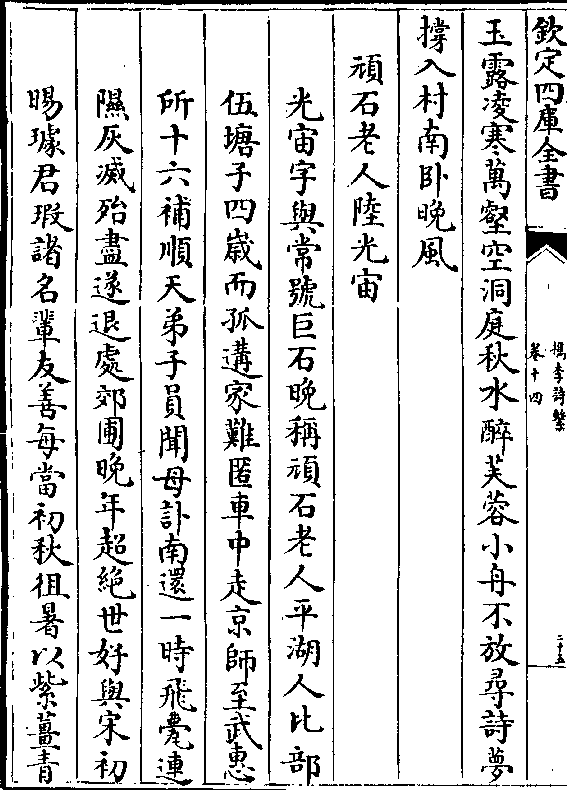 欽定四庫全書
檇李詩繫
卷十四
二十五
玉露凌寒萬壑空洞庭秋水醉芙蓉小舟不放尋詩夢
撐入村南卧晚風
頑石老人陸光宙
光宙字與常號巨石晚稱頑石老人平湖人比部
伍塘子四歲而孤遘家難匿車中走京師至武惠
所十六補順天弟子員聞母訃南還一時飛甍連
隰灰滅殆盡遂退處郊圃晚年超絶世好與宋初
暘璩君瑕諸名輩友善每當初秋徂暑以紫薑青